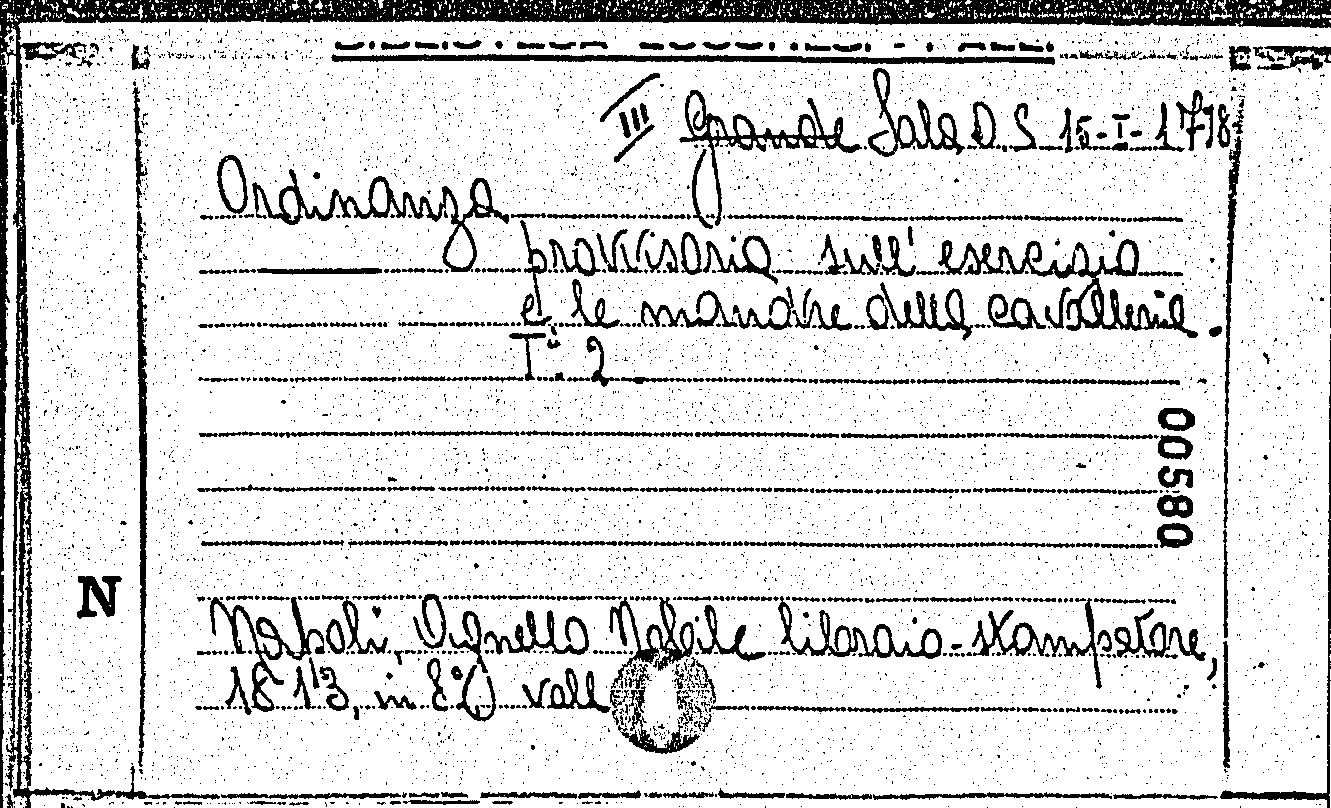 III Grande Sala D. S 15-I-17-18
Ordinanza
provvisoria sull' esercizio
e le manovre della cavalleria.
T.i 2
00580
N
Napoli, Agnello Nobile libraio-stampatore,
1813, in 8°, voll